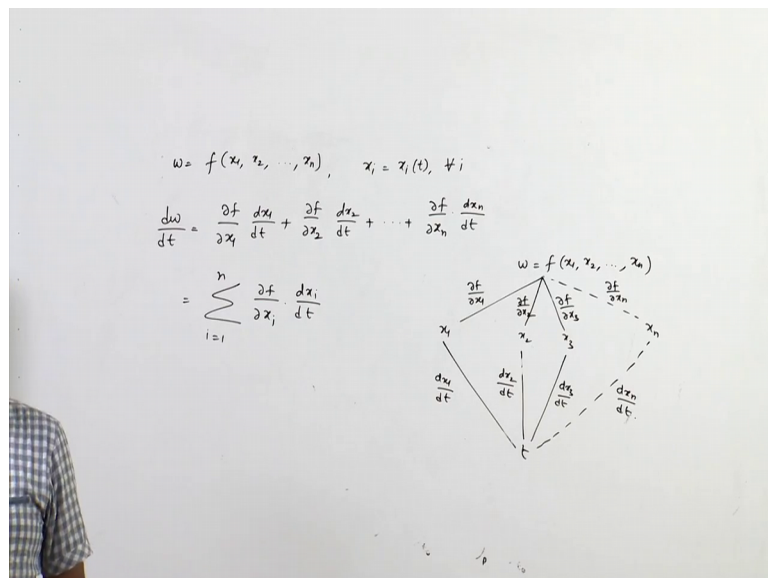 w = f(x₁, x₂, ⋯, xₙ), xᵢ = xᵢ(t), ∀ i
dw/dt = ∂f/∂x₁ dx₁/dt + ∂f/∂x₂ dx₂/dt + ⋯ + ∂f/∂xₙ · dxₙ/dt
= ∑ᵢ₌₁ⁿ ∂f/∂xᵢ · dxᵢ/dt
w = f(x₁, x₂, ⋯, xₙ)
∂f/∂x₁ ∂f/∂x₂ ∂f/∂x₃ ∂f/∂xₙ
x₁ x₂ x₃ xₙ
dx₁/dt dx₂/dt dx₃/dt dxₙ/dt
t